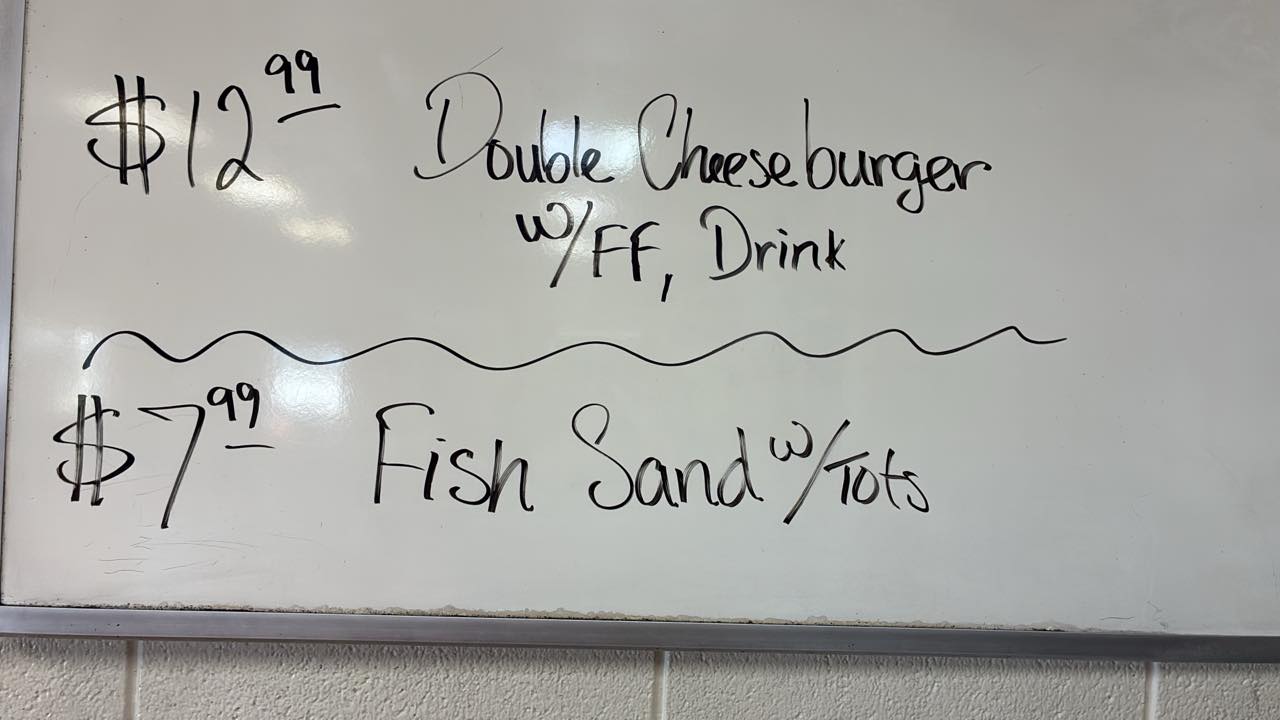 $12 99 Double Cheeseburger
w/FF, Drink
$7 99 Fish Sand w/Tots